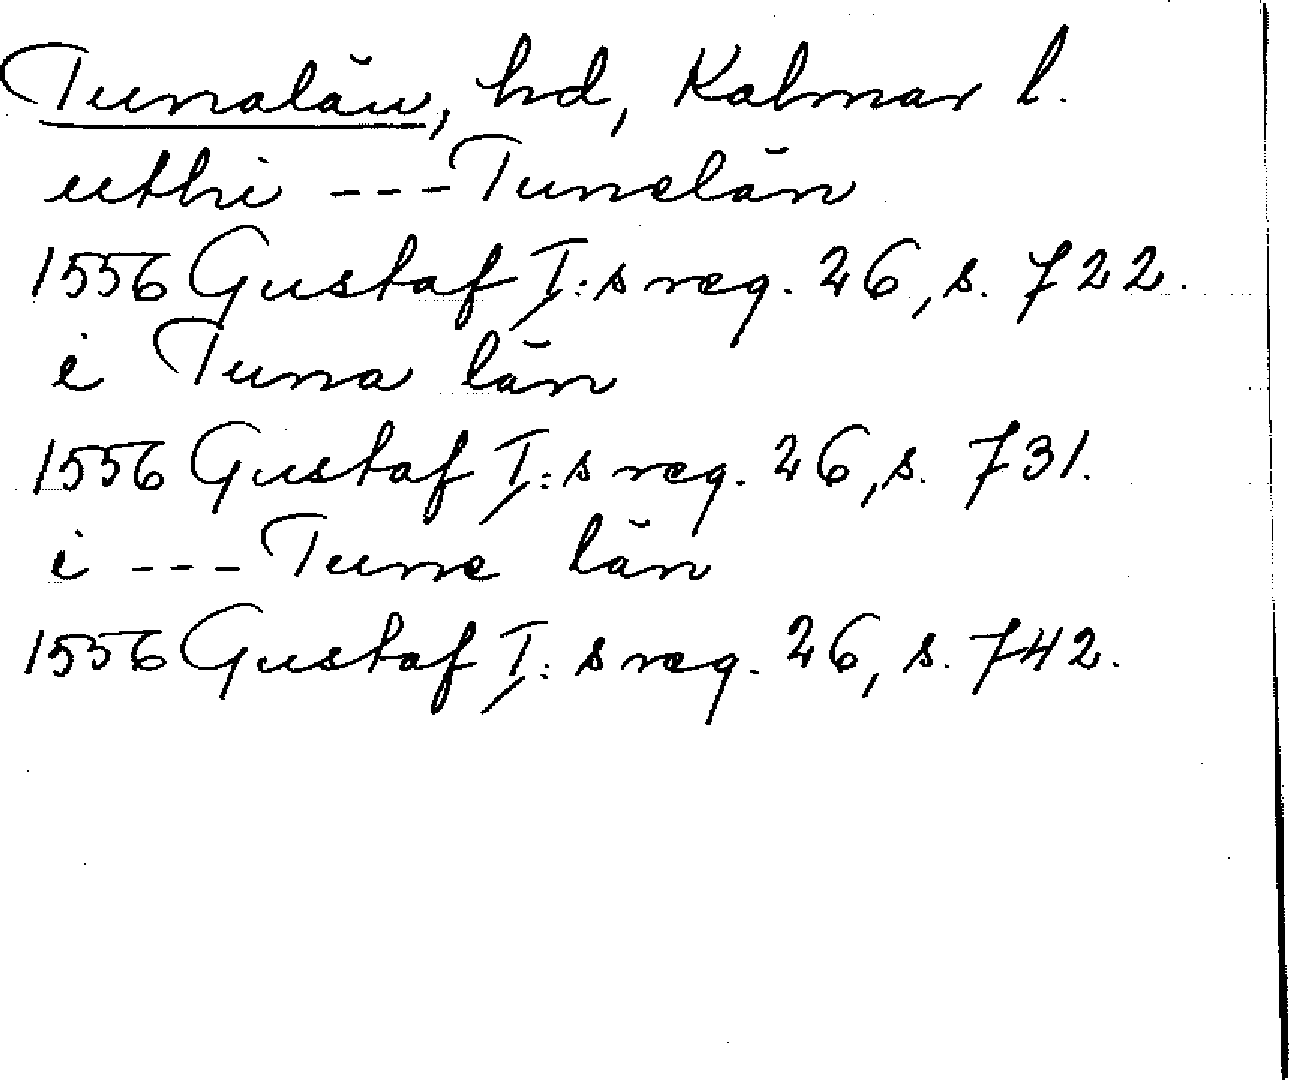 Tunalän, hd, Kalmar l.
uthi --- Tunelän
1556 Gustaf I:s reg. 26, s. 722.
i Tuna län
1556 Gustaf I:s reg. 26, s. 731.
i --- Tune län
1556 Gustaf I:s reg. 26, s. 742.